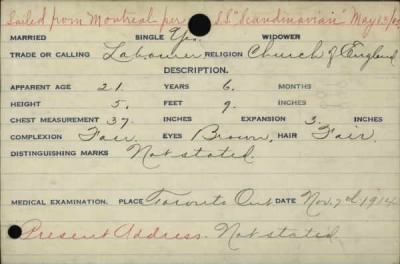 Sailed from Montreal per S.S. "Scandinavian" May
MARRIED SINGLE Yes. WIDOWER
TRADE OR CALLING Labourer RELIGION Church of England
DESCRIPTION.
APPARENT AGE 21. YEARS 6. MONTHS
HEIGHT 5. FEET 9. INCHES
CHEST MEASUREMENT 37. INCHES EXPANSION 3. INCHES
COMPLEXION Fair. EYES Brown. HAIR Fair.
DISTINGUISHING MARKS Not stated.
MEDICAL EXAMINATION. PLACE Toronto Ont DATE Nov. 7th. 1914.
Present Address. Not stated.